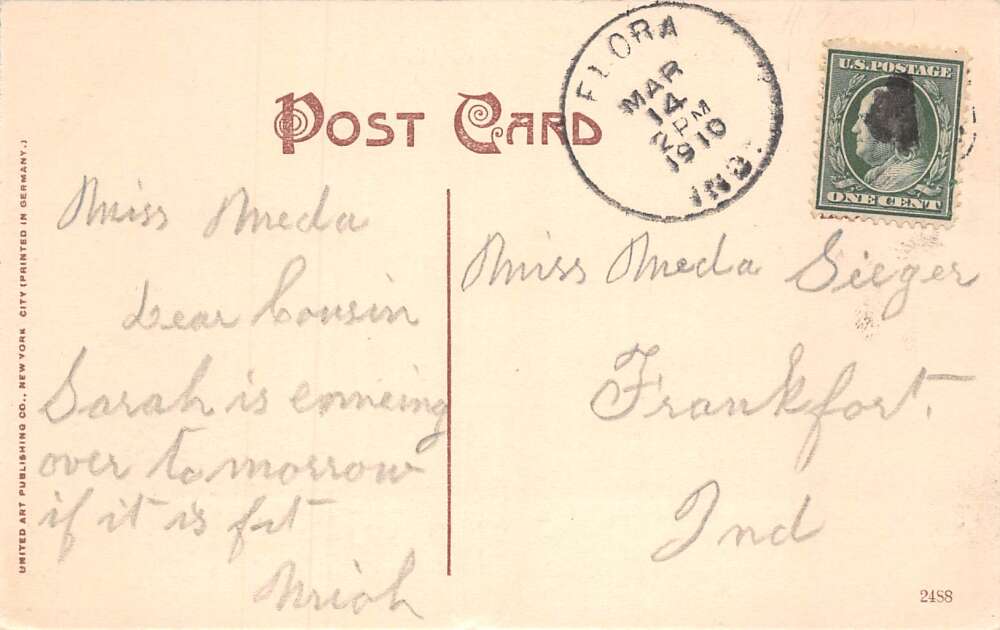 POST CARD
FLORA
MAR
14
2 PM
1910
IND.
U.S. POSTAGE
ONE CENT
Miss Meda
Dear Cousin
Sarah is comeing
over to morrow
if it is fit
Miss Meda Sieger
Frankfort.
Ind
UNITED ART PUBLISHING CO., NEW YORK CITY (PRINTED IN GERMANY.)
2488